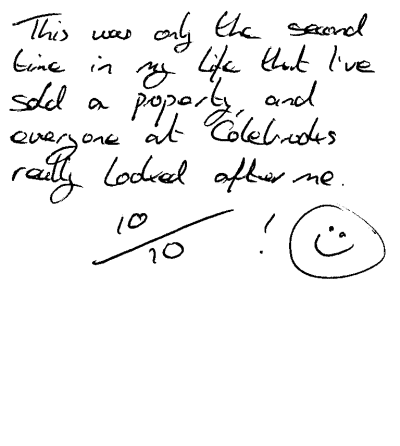 This was only the second
time in my life that I've
sold a property, and
everyone at Colebrooks
really looked after me.
10/10 !